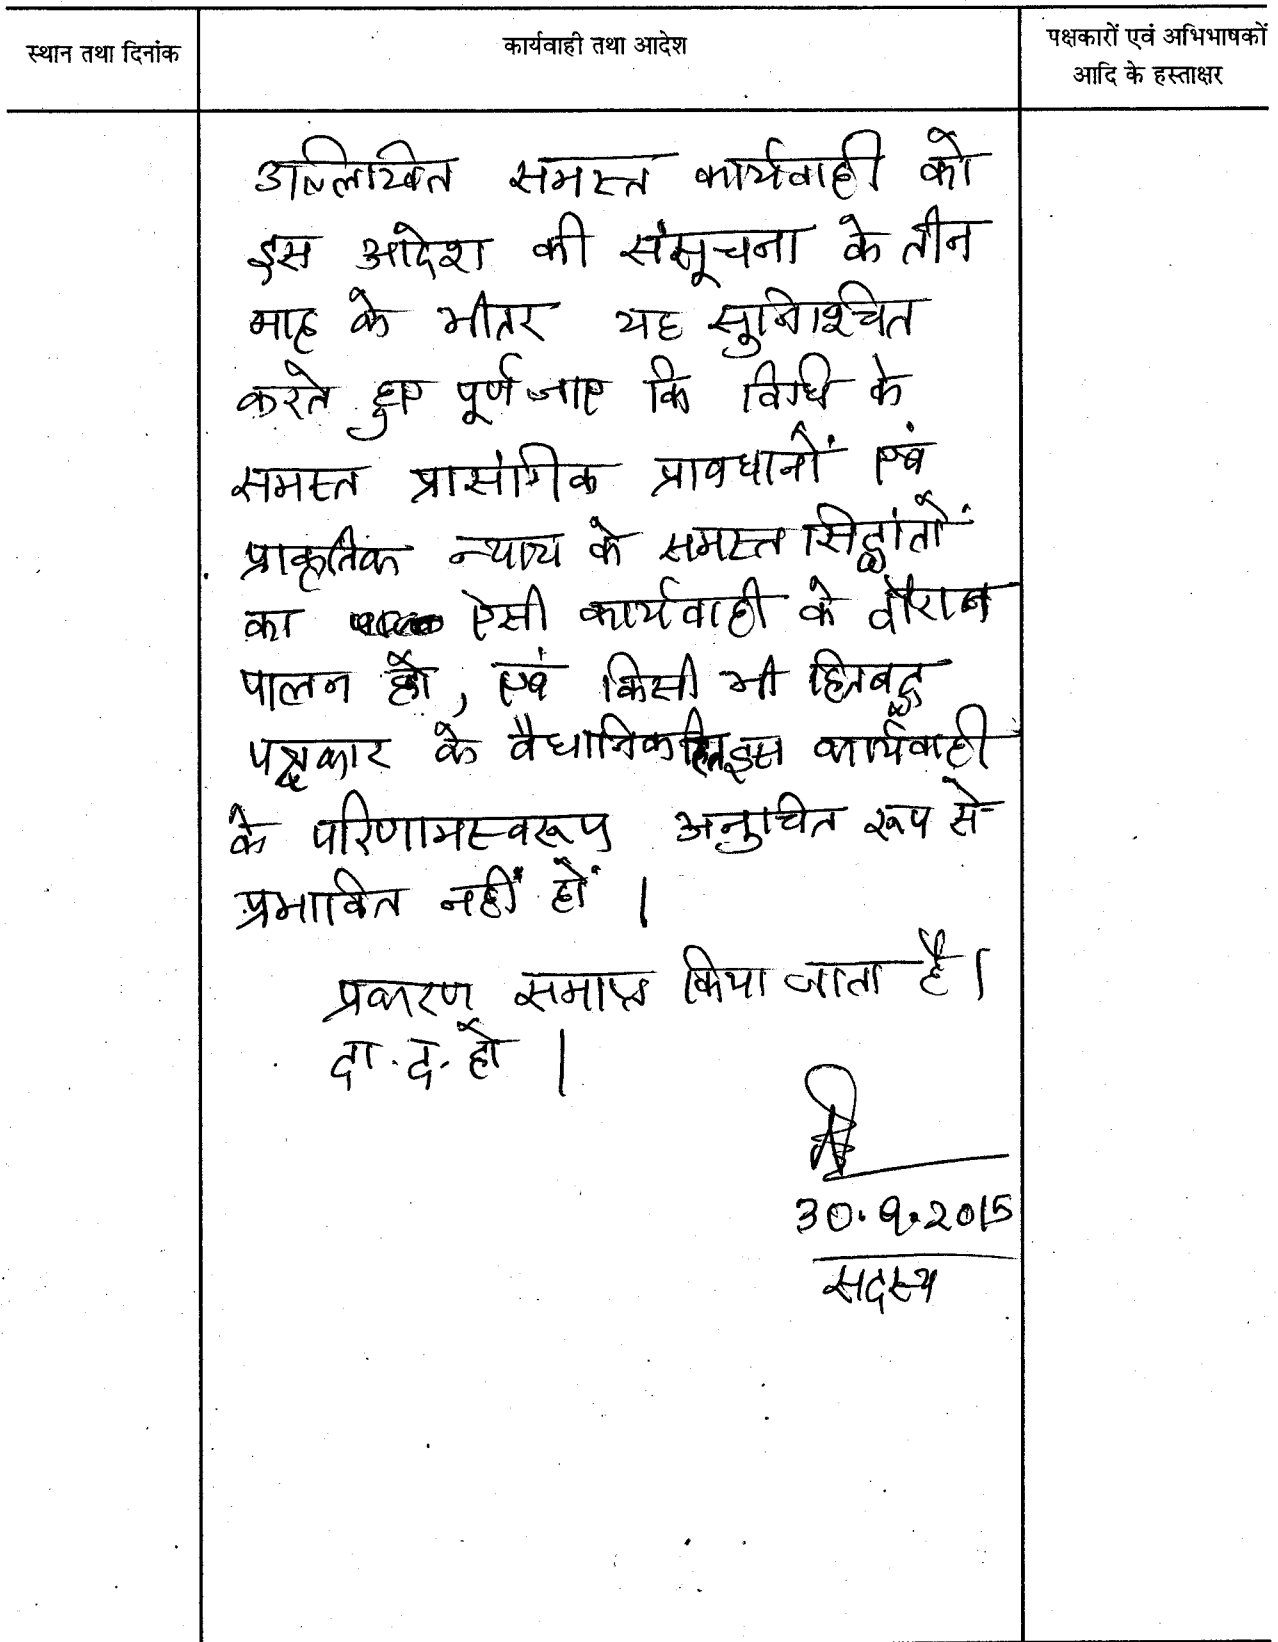 स्थान तथा दिनांक
कार्यवाही तथा आदेश
पक्षकारों एवं अभिभाषकों
आदि के हस्ताक्षर
समस्त कार्यवाही को
इस आदेश की संसूचना के तीन
माह के भीतर यह सुनिश्चित
करते हुए पूर्ण जाए कि विधि के
समस्त प्रासंगिक प्रावधानों एवं
प्राकृतिक न्याय के समस्त सिद्धांतों
का ऐसी कार्यवाही के दौरान
पालन हो, एवं किसी भी हितबद्ध
पक्षकार के वैधानिक हित इस कार्यवाही
के परिणामस्वरूप अनुचित रूप से
प्रभावित नहीं हों ।
प्रकरण समाप्त किया जाता है।
दा.द. हो ।
30.9.2015
सदस्य